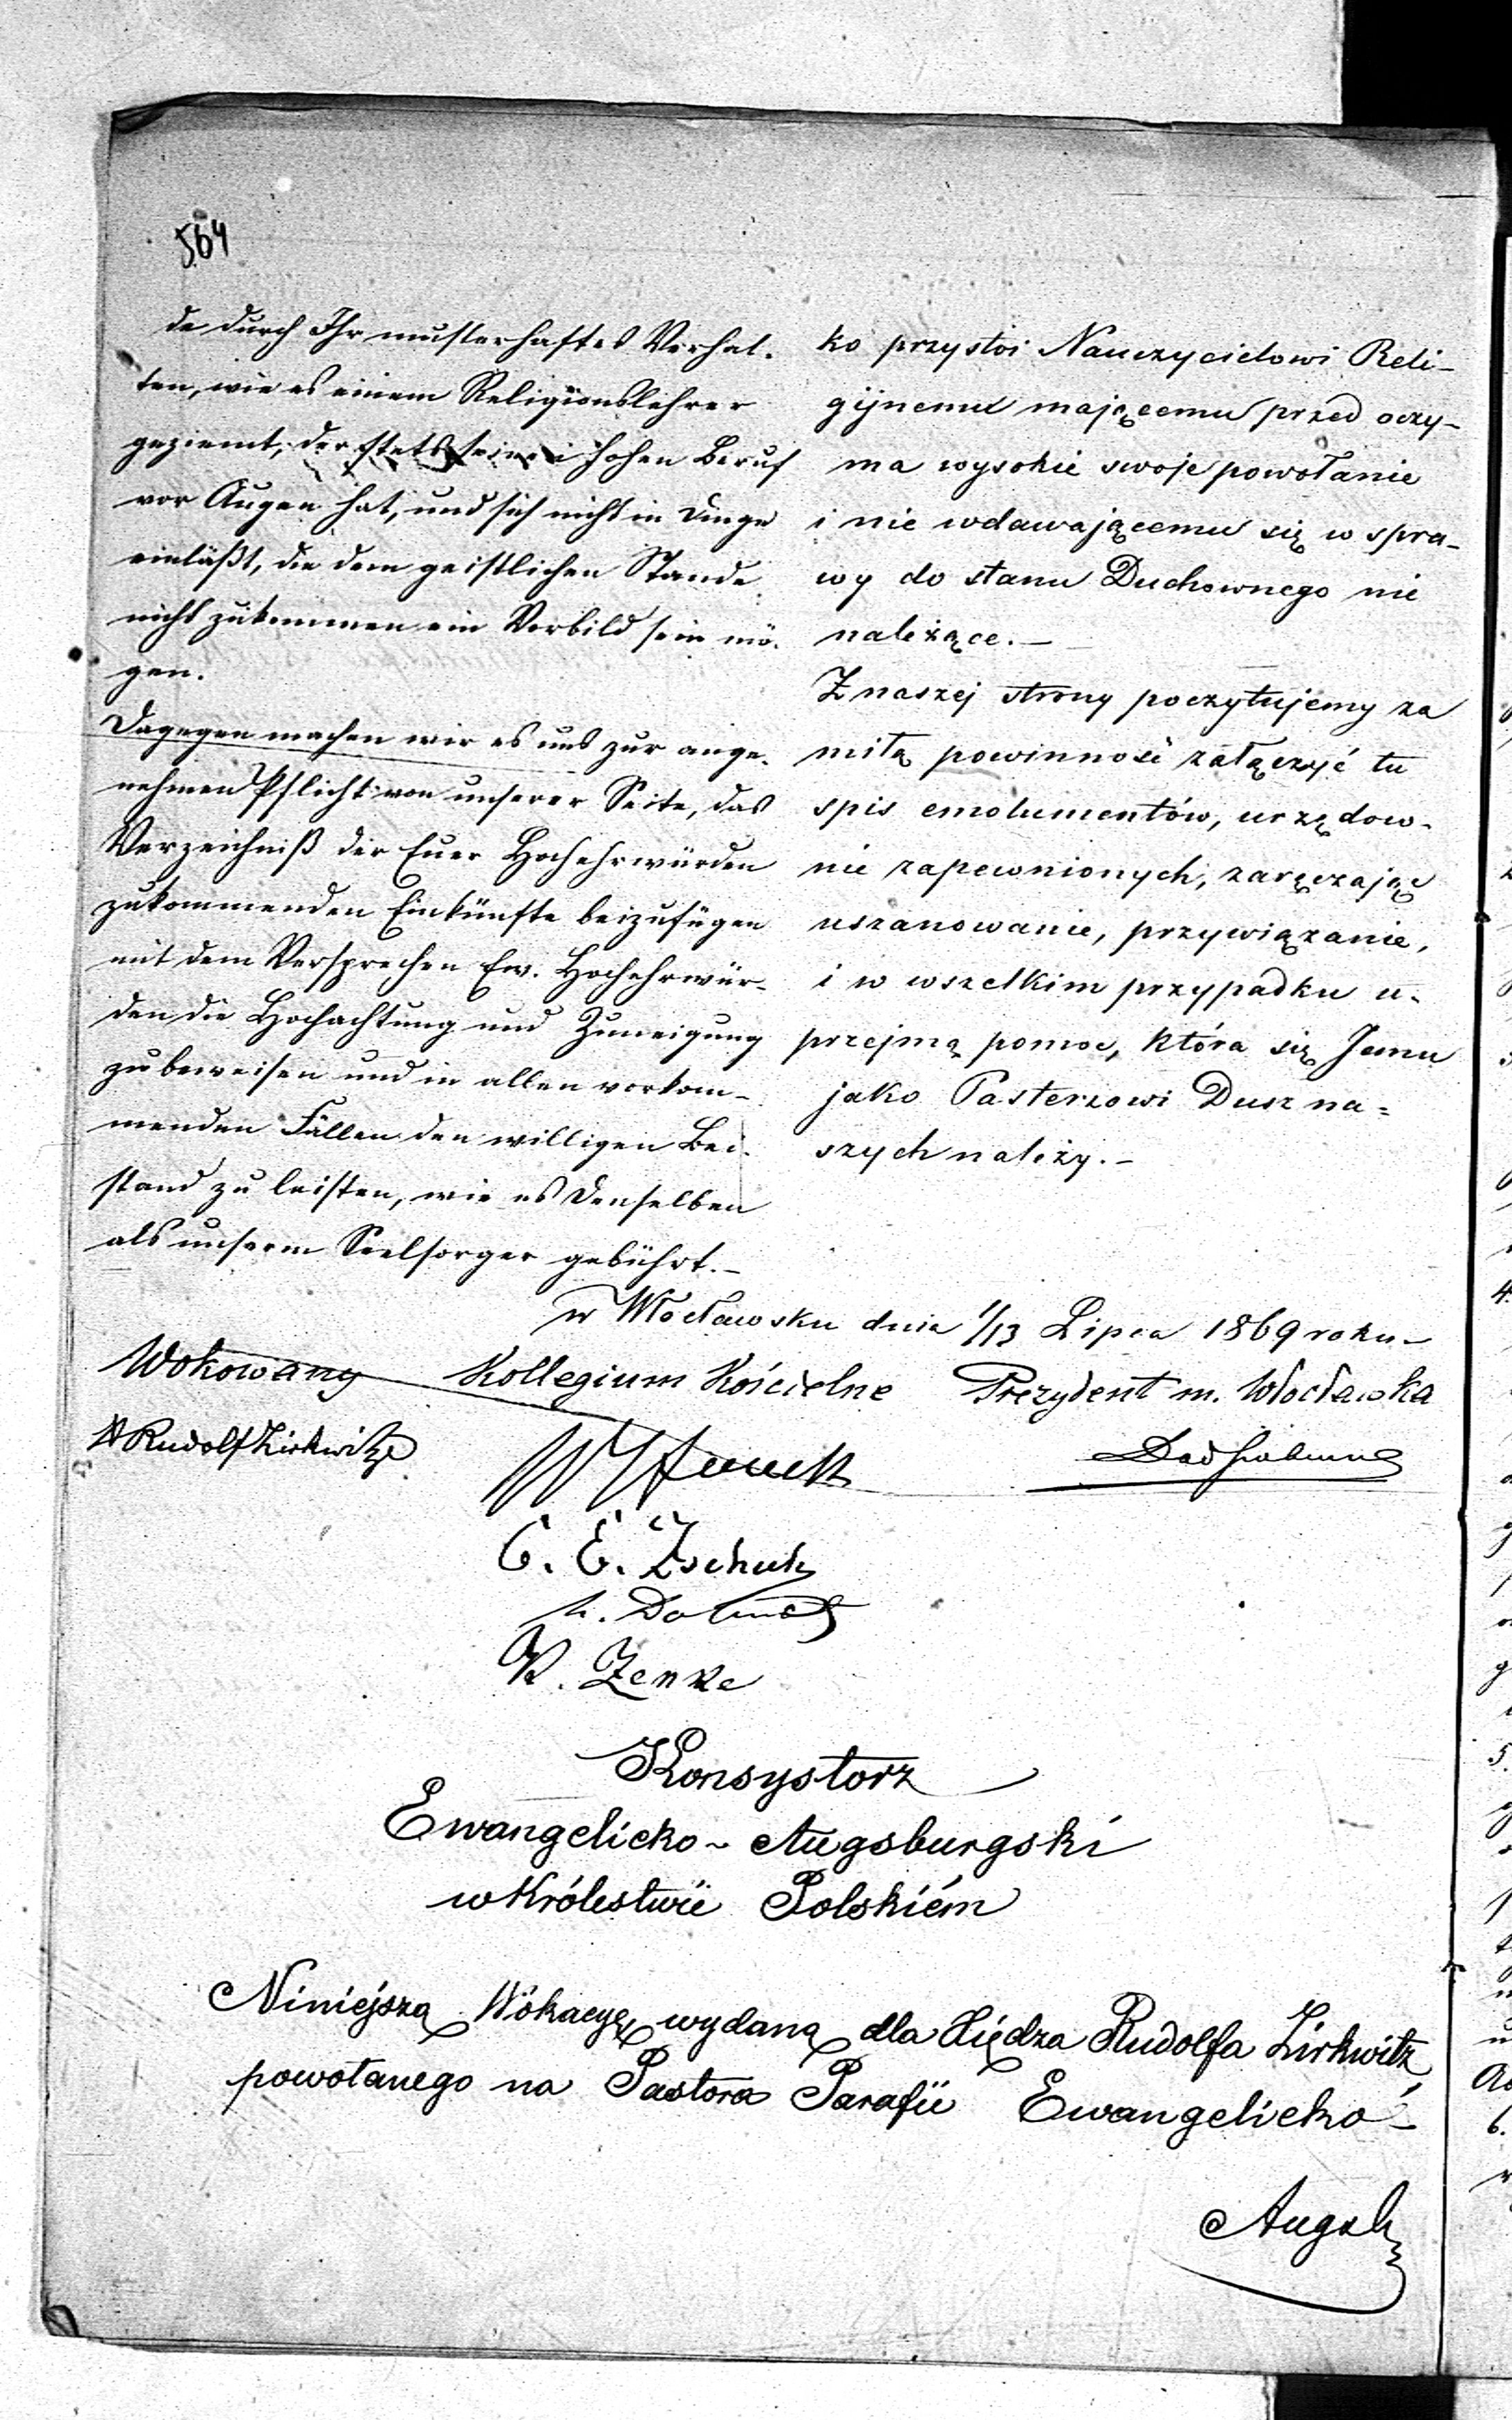 564
de durch Ihr musterhaftes Verhal-
ten, wie es einem Religionslehrer
geziemt, der stets seinen hohen Beruf
vor Augen hat, und sich nicht in Dinge
einläßt, die dem geistlichen Stande
nicht zukommen ein Vorbild sein mö-
gen.
Dagegen machen wir es uns zur ange-
nehmen Pflicht von unserer Seite, das
Verzeichniß der Euer Hochehrwürden
zukommenden Einkünfte beizufügen
mit dem Versprechen Ew. Hochehrwür-
den die Hochachtung und Zuneigung
zu beweisen und in allen vorkom-
menden Fällen den willigen Bei-
stand zu leisten, wie es Denselben
als unserm Seelsorger gebührt.-
ko przystoi Nauczycielowi Reli-
gijnemu mającemu przed oczy-
ma wysokie swoje powołanie
i nie wdawającemu się w spra-
wy do stanu Duchownego nie
należące.-
Z naszej strony poczytujemy za
miłą powinność załączyć tu
spis emolumentów, urzędow-
nie zapewnionych, zaręczając
uszanowanie, przywiązanie,
i w wszelkim przypadku u-
przejmą pomoc, która się Jemu
jako Pasterzowi Dusz na=
szych należy.-
w Włocławsku dnia 1/13 Lipca 1869 roku-
Wokowany Kollegium Kościelne Prezydent m. Włocławka
Rudolf Zirkwitz
C. E. Zschuk
W. Zenke
Konsystorz
Ewangelicko-Augsburgski
w Królestwie Polskiém
Niniejszą Wokacyę wydaną dla Xiędza Rudolfa Zirkwitz
powołanego na Pastora Parafii Ewangelicko-
Augsb